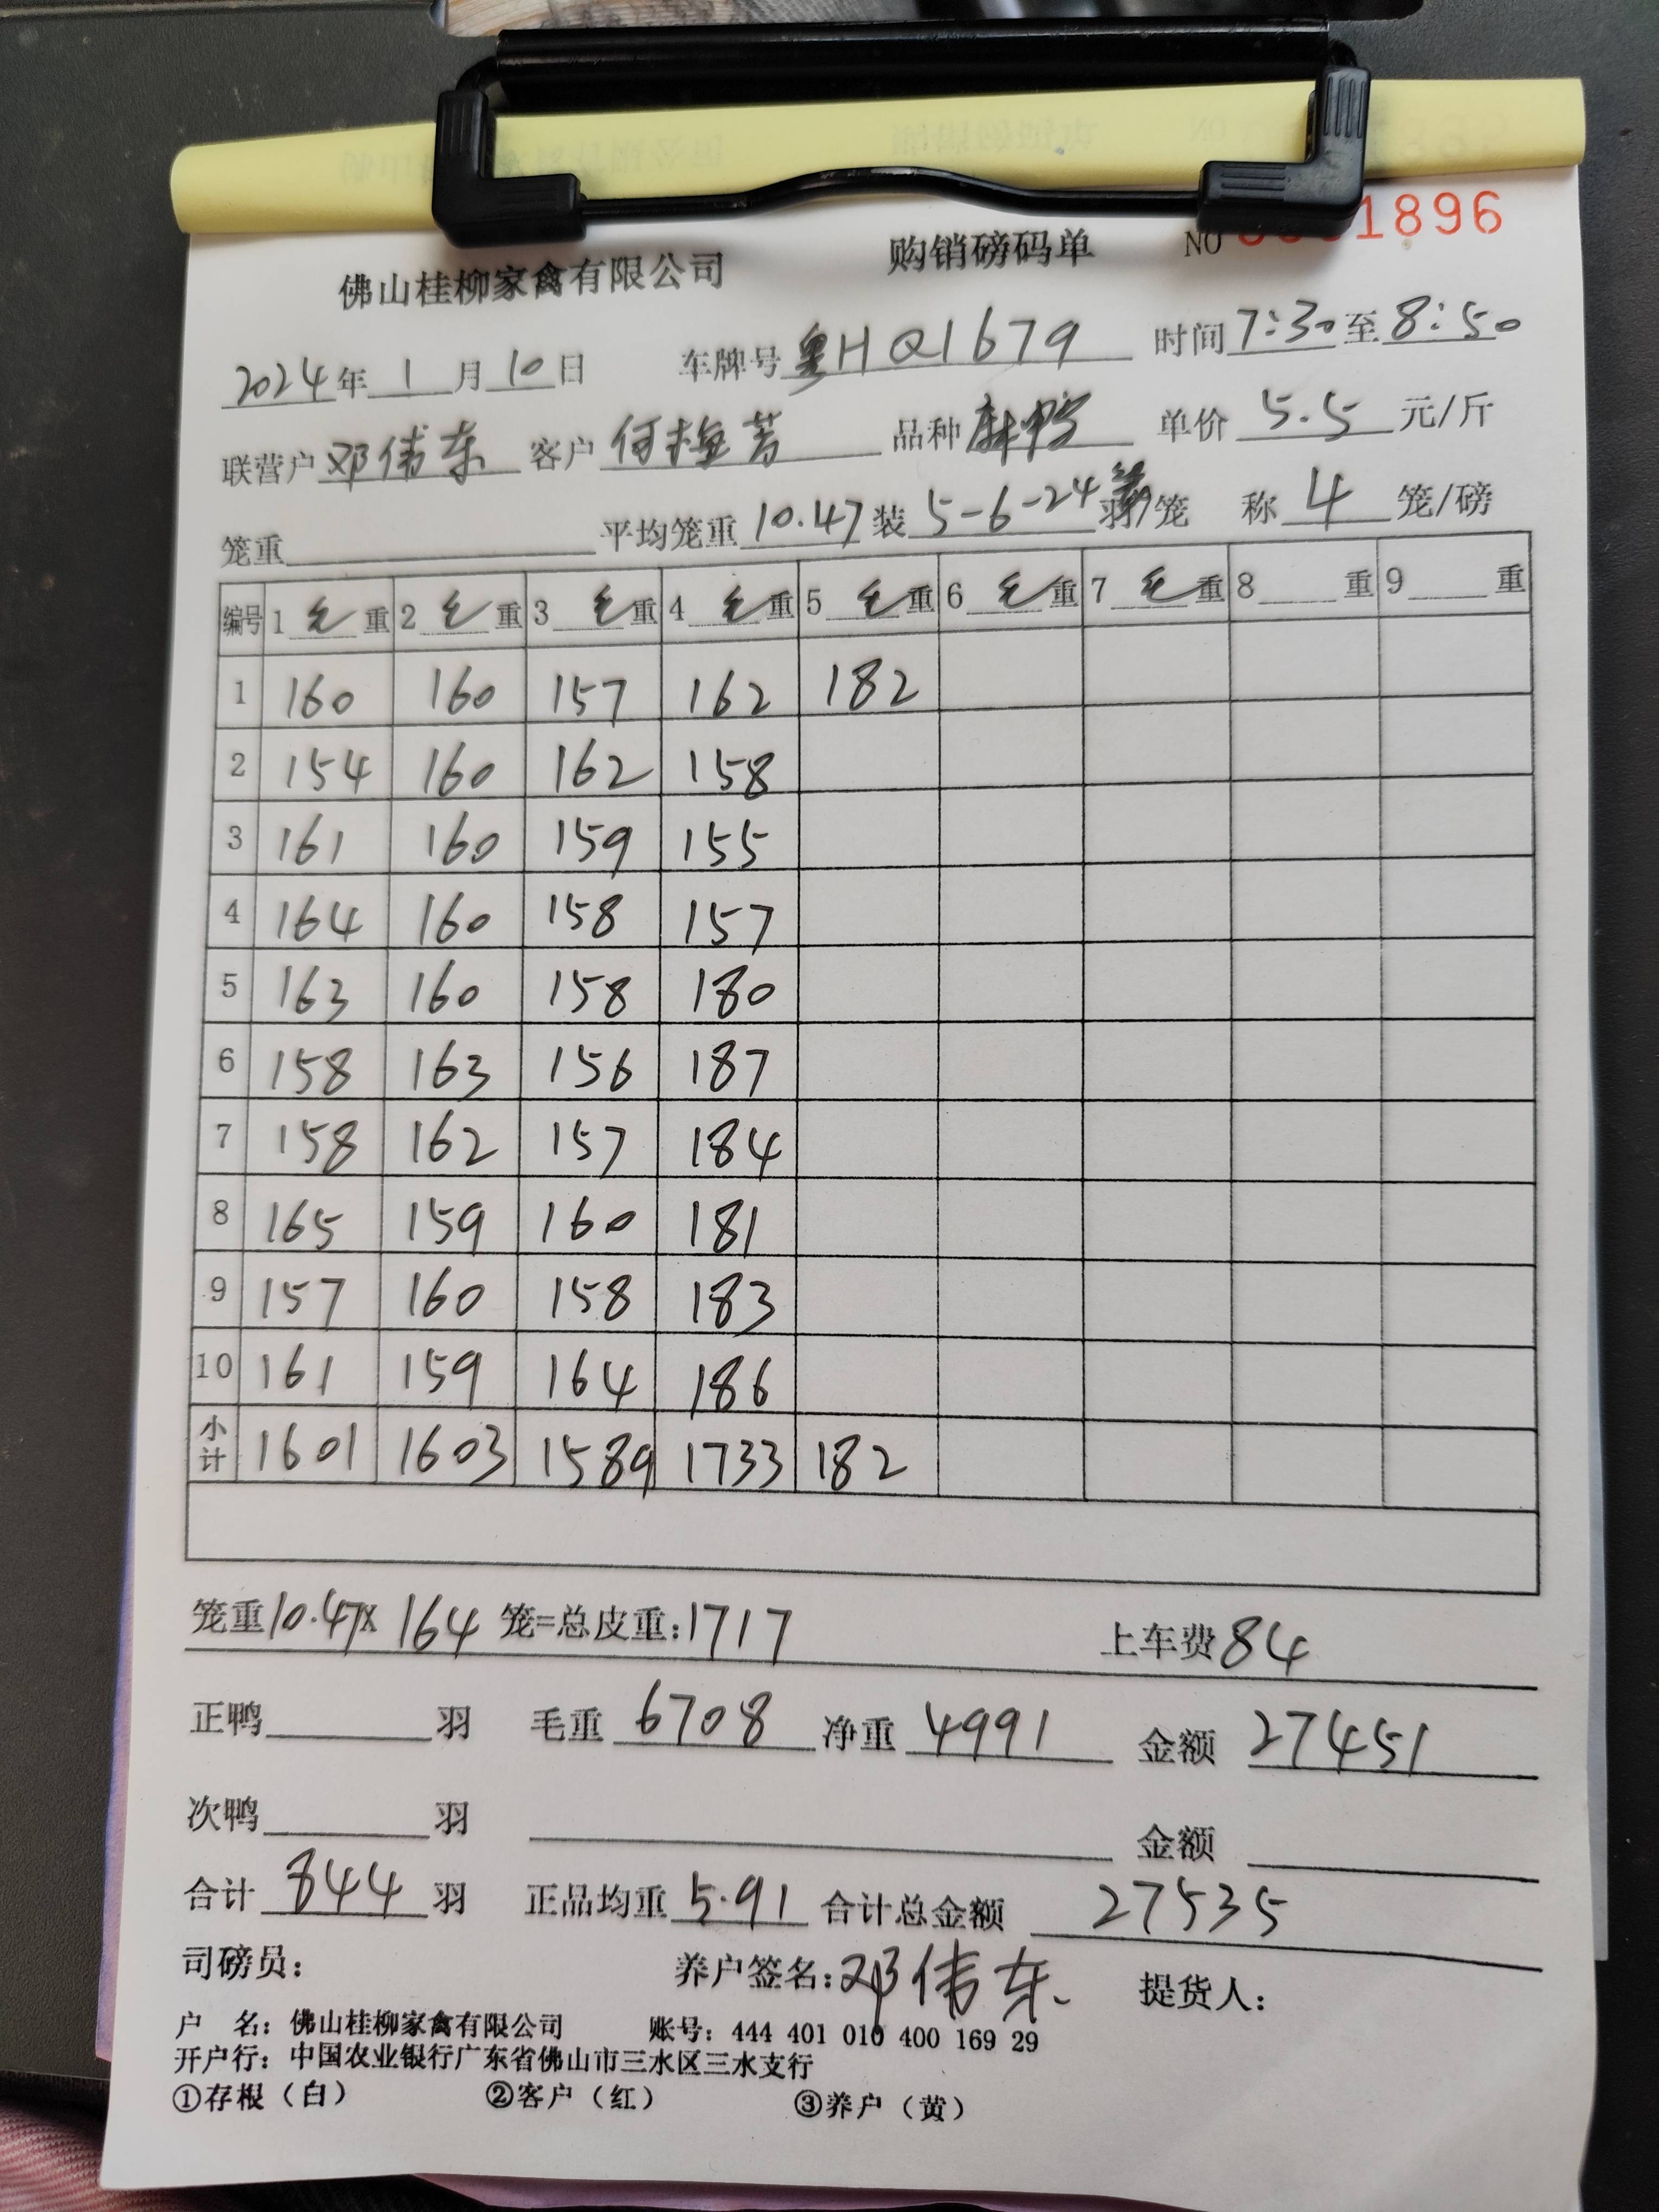 佛山桂柳家禽有限公司 购销磅码单 NO 1896
2024年 1 月 10 日 车牌号 粤HQ1679 时间 7:30 至 8:50
联营户 邓伟东 客户 何梅芳 品种 麻鸭 单价 5.5 元/斤
笼重 平均笼重 10.47 装 5-6-24 羽/笼 称 4 笼/磅
编号 1 毛 重 2 毛 重 3 毛 重 4 毛 重 5 毛 重 6 毛 重 7 毛 重 8 重 9 重
1 160 160 157 162 182
2 154 160 162 158
3 161 160 159 155
4 164 160 158 157
5 163 160 158 180
6 158 163 156 187
7 158 162 157 184
8 165 159 160 181
9 157 160 158 183
10 161 159 164 186
小计 1601 1603 1589 1733 182
笼重 10.47 X 164 笼=总皮重: 1717 上车费 84
正鸭 羽 毛重 6708 净重 4991 金额 27451
次鸭 羽 金额
合计 844 羽 正品均重 5.91 合计总金额 27535
司磅员: 养户签名: 邓伟东 提货人:
户 名: 佛山桂柳家禽有限公司 账号: 444 401 010 400 169 29
开户行: 中国农业银行广东省佛山市三水区三水支行
①存根（白） ②客户（红） ③养户（黄）